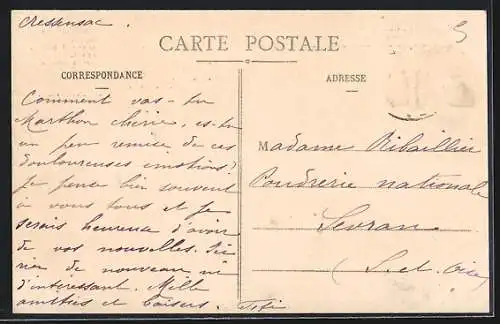 Cressensac.
CARTE POSTALE
CORRESPONDANCE
Comment vas-tu
Marthon chérie, es-tu
un peu remise de ces
douloureuses emotions?
Je pense bien souvent
à vous tous et je
serais heureuse d'avoir
de vos nouvelles. Ici
rien de nouveau ni
d'interessant. Mille
amitiés et baisers. Titi
ADRESSE
Madame Ribaillier
Poudrerie nationale
Sevran
S. et Oise